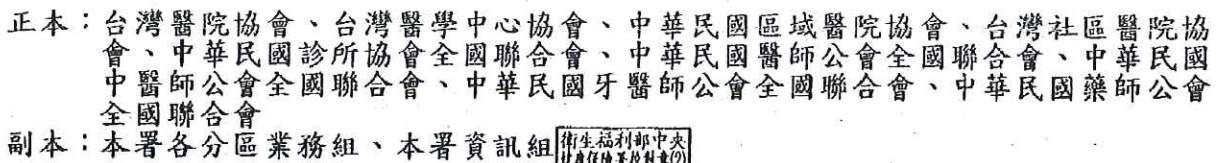 正本：台灣醫院協會、台灣醫學中心協會、中華民國區域醫院協會、台灣社區醫院協
會、中華民國診所協會全國聯合會、中華民國醫師公會全國聯合會、中華民國
中醫師公會全國聯合會、中華民國牙醫師公會全國聯合會、中華民國藥師公會
全國聯合會
副本：本署各分區業務組、本署資訊組
衛生福利部中央